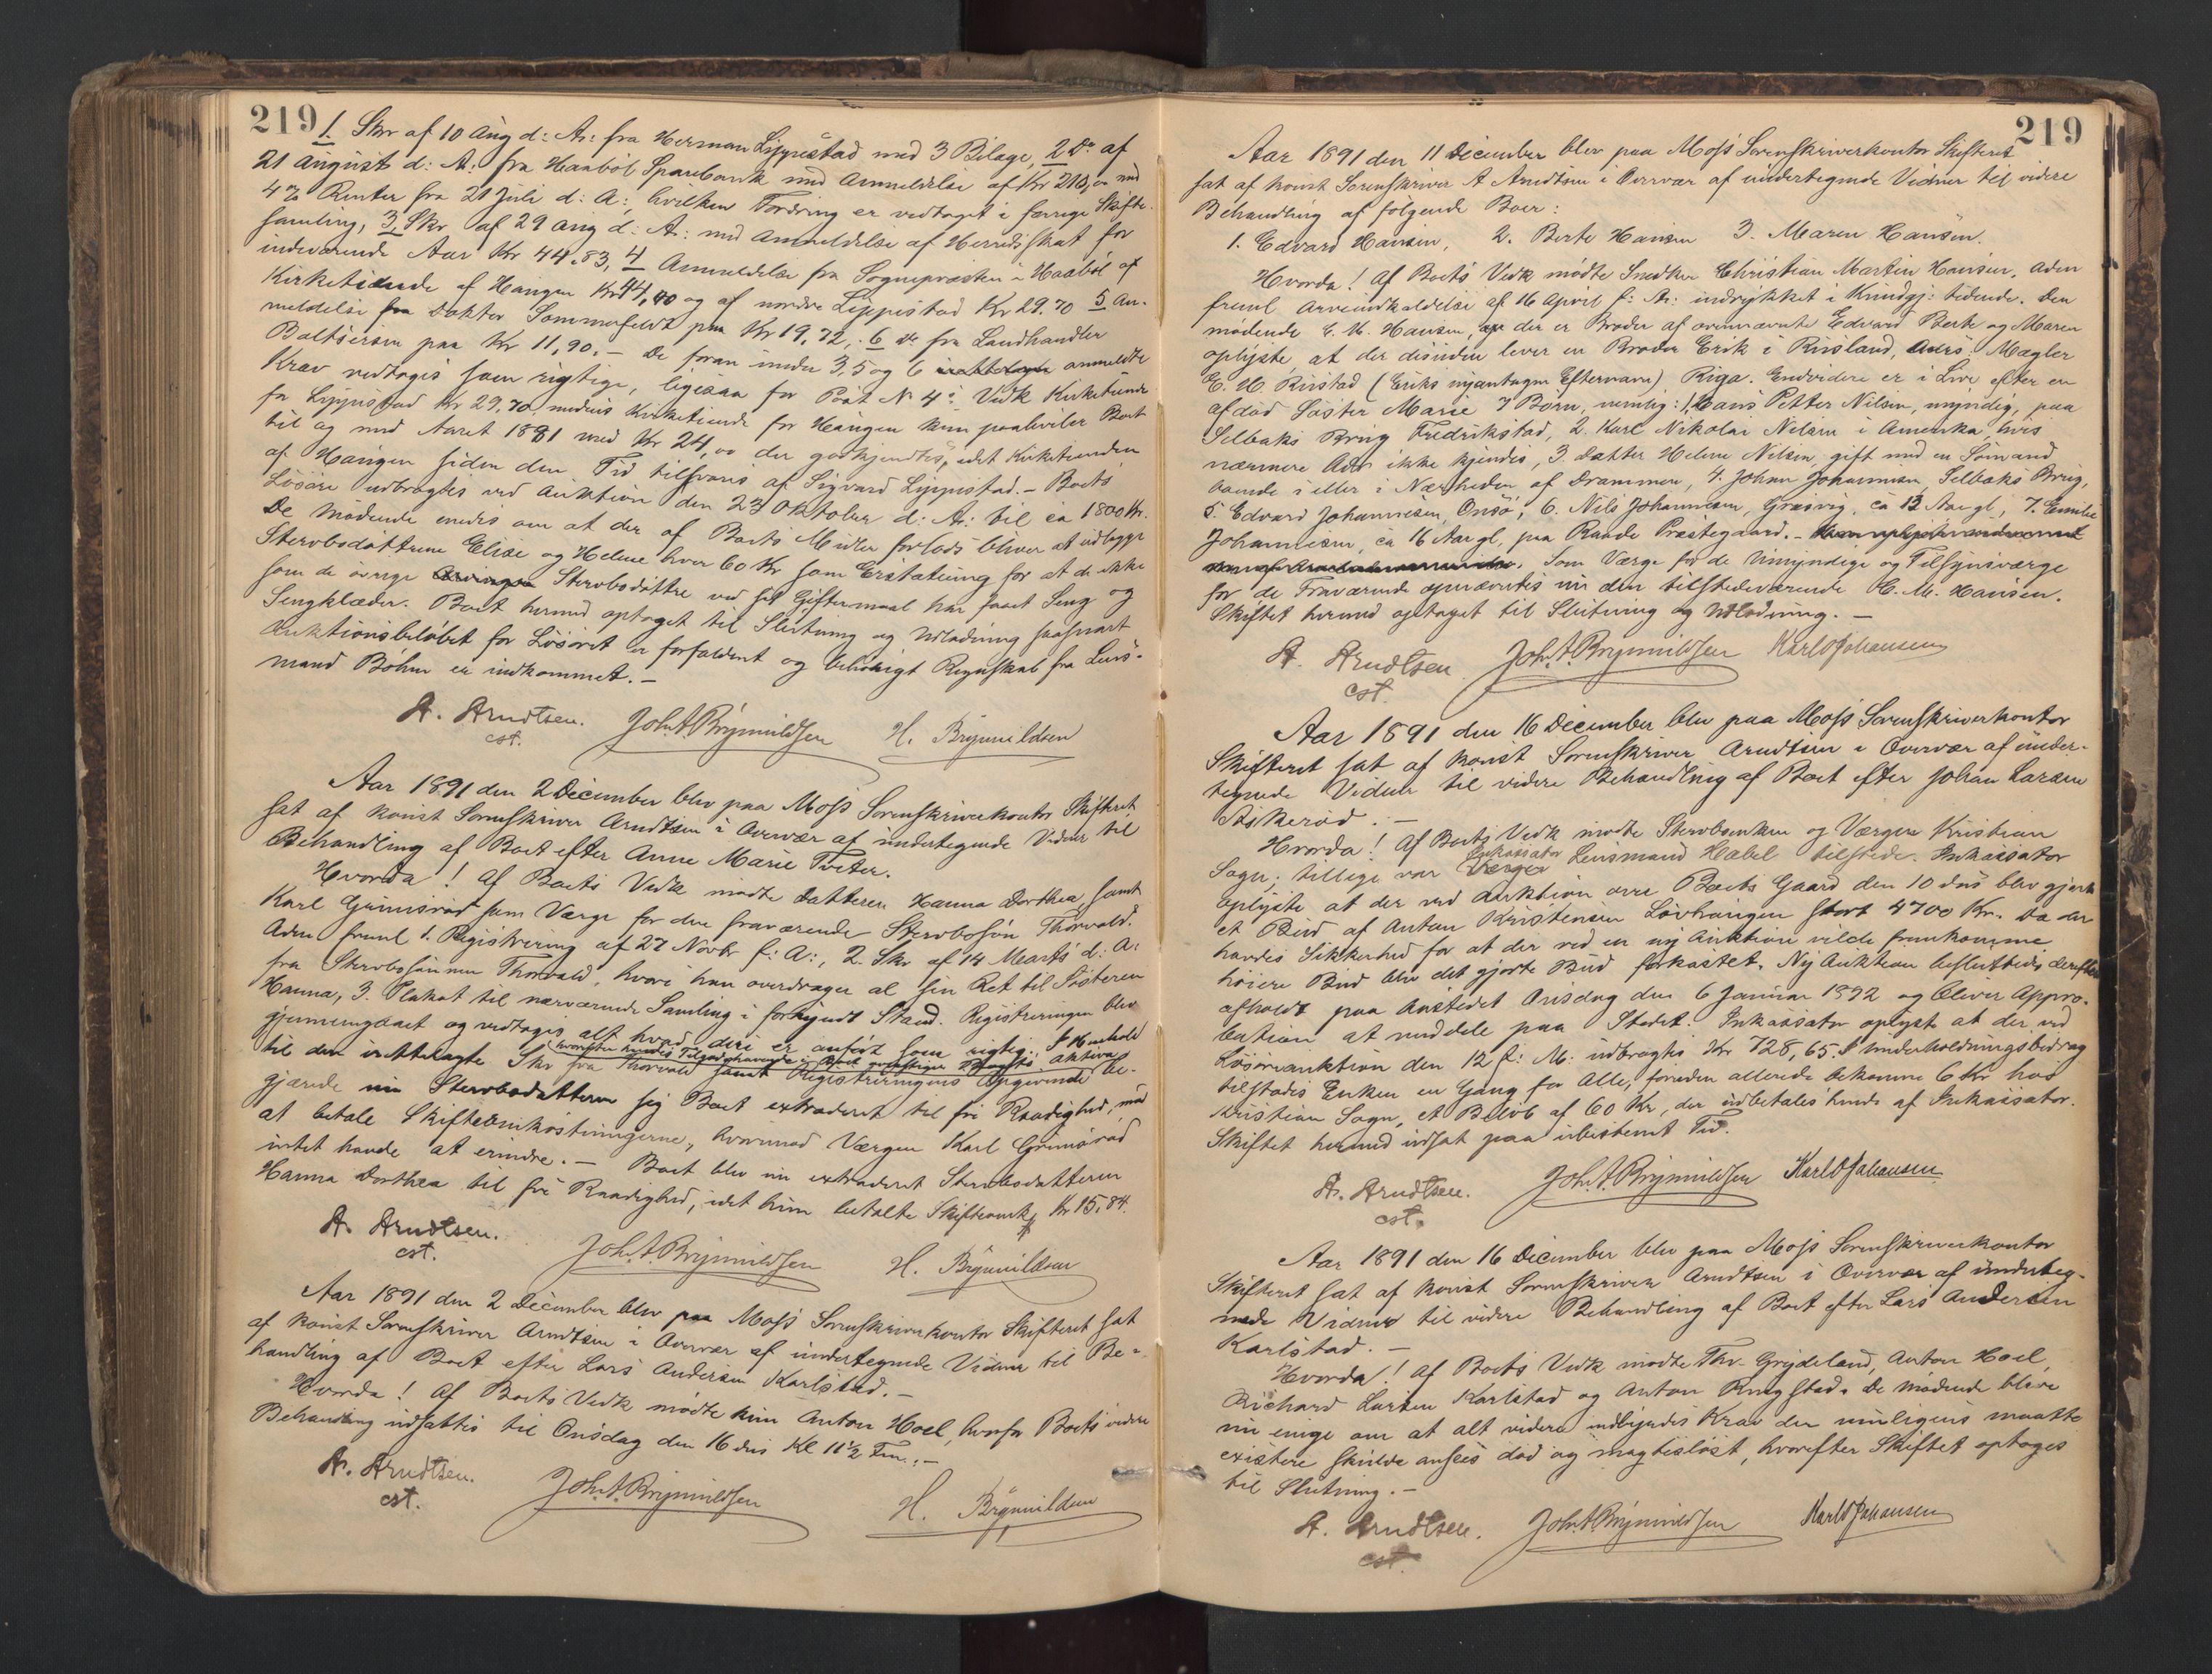 219
1. Skr af 10 Aug d: A: fra Herman Lippestad med 3 Bilage, 2 Do af
21 August d: A: fra Haabøl Sparebank med Anmeldelse af Kr 210,00 med
4 % Renter fra 21 Juli d: A:, hvilken Fordring er vedtaget i forrige Skifte-
samling, 3, Skr af 29 Aug d: A: med Anmeldelse af Herredsskat for
indeværende Aar Kr 44.53, 4 Anmeldelse fra Sognepræsten i Haabøl af
Kirketiende af Haugen Kr 44,40 og af nordre Lippestad Kr 29.70 5 An-
meldelse fra Doktor Sommerfeldt paa Kr 19,72, 6 Do fra Landhandler
Baltsersen paa Kr 11,90. – De foran under 3, 5 og 6 anmeldte
Krav vedtoges som rigtige, ligesaa for Post N 4's Vedk Kirketiende
for Lippestad Kr 29,70, medens Kirketiende for Haugen kun paahviler Boet
til og med Aaret 1881 med Kr 24,00 der godkjendtes, idet Kirketienden
af Haugen siden den Tid tilsvares af Sigvard Lippestad. – Boets
Løsøre udbragtes ved Auktion den 23 Oktober d: A: til ca 1800 Kr.
De Mødende enedes om at der af Boets Midler forlods bliver at udlægge
Stervbodøttrene Elise og Helene hver 60 Kr som Erstatning for at de ikke
som de øvrige Arvinger Stervbsdøttre ved sit Giftermaal har faaet Seng og
Sengklæder. Boet hermed optaget til Slutning og Udlodning saasnart
Auktionsbeløbet for Løsøret er forfaldent og behørigt Regnskab fra Lens-
mand Böhm er indkommet. –
A. Arndtsen. Joh. A. Brynildsen H. Brynildsen
cst.
Aar 1891 den 2 December blev paa Moss Sorenskriverkontor Skifteret
sat af konst Sorenskriver Arndtsen i Overvær af undertegnede Vidner til
Behandling af Boet efter Anne Marie Tveter.
Hvorda! Af Boets Vedk mødte Datteren Hanna Dorthea, samt
Karl Grimsrød som Værge for den fraværende Stervbosøn Thorvald.
Aden freml 1. Registrering af 27 Novbr f: A:, 2. Skr af 14 Marts d: A:
fra Stervbosønnen Thorvald, hvori han overdrager al sin Ret til Søsteren
Hanna, 3. Plakat til nærværende Samling i forkyndt Stand. Registreringen blev
gjennemgaaet og vedtoges alt hvad deri er anført som rigtig. I Henhold
hvorefter hendes Tilgodehavende i Boet overstiger Boets Aktiva
til den irettelagte Skr fra Thorvald samt Registreringens Opgivende be-
gjærede nu Stervbodatteren sig Boet extraderet til fri Raadighed, mod
at betale Skifteomkostningerne, hvorimod Værgen Karl Grimsrød
intet havde at erindre. – Boet blev nu extraderet Stervbodatteren
Hanna Dorthea til fri Raadighed, idet hun betalte Skifteomk Kr 15,84.
A. Arndtsen. Joh. A. Brynildsen H. Brynildsen
cst.
Aar 1891 den 2 December blev paa Moss Sorenskriverkontor Skifteret sat
af konst Sorenskriver Arndtsen i Overvær af undertegnede Vidner til Be-
handling af Boet efter Lars Andersen Karlstad. –
Hvorda! Af Boets Vedk mødte kun Anton Hoel, hvorfor Boets videre
Behandling udsattes til Onsdag den 16 dns Kl 11½ Fm. –
A. Arndtsen. Joh. A. Brynildsen H. Brynildsen
cst.
219
Aar 1891 den 11 December blev paa Moss Sorenskriverkontor Skifteret
sat af konst Sorenskriver A Arndtsen i Overvær af undertegnede Vidner til videre
Behandling af følgende Boer:
1. Edvard Hansen, 2. Berte Hansen 3. Maren Hansen.
Hvorda! Af Boets Vedk mødte Snedker Christian Martin Hansen. Aden
freml Arveindkaldelse af 16 April f: A: indrykket i Kundgj: tidende. Den
mødende C. M. Hansen, der er Broder af ovennævnte Edvard Berte og Maren
oplyste at der desuden lever en Broder Erik i Rusland, Adrs: Mægler
E. H. Rustad (Eriks nyantagne Efternavn) Riga. Endvidere er i Live efter en
afdød Søster Marie 7 Børn, nemlig: 1, Hans Petter Nilsen, myndig, paa
Selbaks Brug Fredrikstad, 2. Karl Nikolai Nilsen i Amerika hvis
nærmere Adrs ikke kjendes, 3. Datter Helene Nilsen, gift med en Sømand
boende i eller i Nærheden af Drammen, 4. Johan Johannesen, Selbaks Brug,
5. Edvard Johannesen, Onsø, 6. Nils Johannesen, Græsvig, ca 13 Aar gl, 7. Emilie
Johannesen, ca 16 Aar gl, paa Raade Præstegaard. –
Som Værge for de Umyndige og Tilsynsværge
for de Fraværende opnævntes nu den tilstedeværende C. M. Hansen.
Skiftet hermed optaget til Slutning og Udlodning. –
A. Arndtsen Joh. A. Brynildsen Karl O Johansen
cst.
Aar 1891 den 16 December blev paa Moss Sorenskriverkontor
Skifteret sat af konst Sorenskriver Arndtsen i Overvær af under-
tegnede Vidner til videre Behandling af Boet efter Johan Larsen
Askerød. –
Hvorda! Af Boets Vedk mødte Stervboenken og Værgen Kristian
Inkassator
Sogn; tillige var Værger Lensmand Habel tilstede. Inkassator
oplyste at der ved Auktion over Boets Gaard den 10 dns blev gjort
et Bud af Anton Kristensen Løvhaugen stort 4700 Kr. Da der
havdes Sikkerhed for at der ved en ny Auktion vilde fremkomme
høiere Bud blev det gjorte Bud forkastet. Ny Auktion besluttedes derefter
afholdt paa Aastedet Onsdag den 6 Januar 1892 og bliver Appro-
bation at meddele paa Stedet. Inkassator oplyste at der ved
Løsøreauktion den 12 f: M: udbragtes Kr 728,65. I Underholdningsbidrag
tilstodes Enken en Gang for Alle, foruden allerede bekomne 6 Kr hos
Kristian Sogn, et Beløb af 60 Kr, der udbetales hende af Inkassator.
Skiftet hermed udsat paa ubestemt Tid.
A. Arndtsen. Joh. A. Brynildsen Karl O Johansen
cst.
Aar 1891 den 16 December blev paa Moss Sorenskriverkontor
Skifteret sat af konst Sorenskriver Arndtsen i Overvær af underteg-
nede Vidner til videre Behandling af Boet efter Lars Andersen
Karlstad. –
Hvorda! Af Boets Vedk mødte Thv. Grydeland, Anton Hoel,
Richard Larsen Karlstad og Anton Rugstad. De Mødende bleve
nu enige om at alt videre udbyndes Krav der muligens maatte
existere skulde ansees død og magtesløst, hvorefter Skiftet optoges
til Slutning. –
A. Arndtsen. Joh. A. Brynildsen Karl O Johansen
cst.